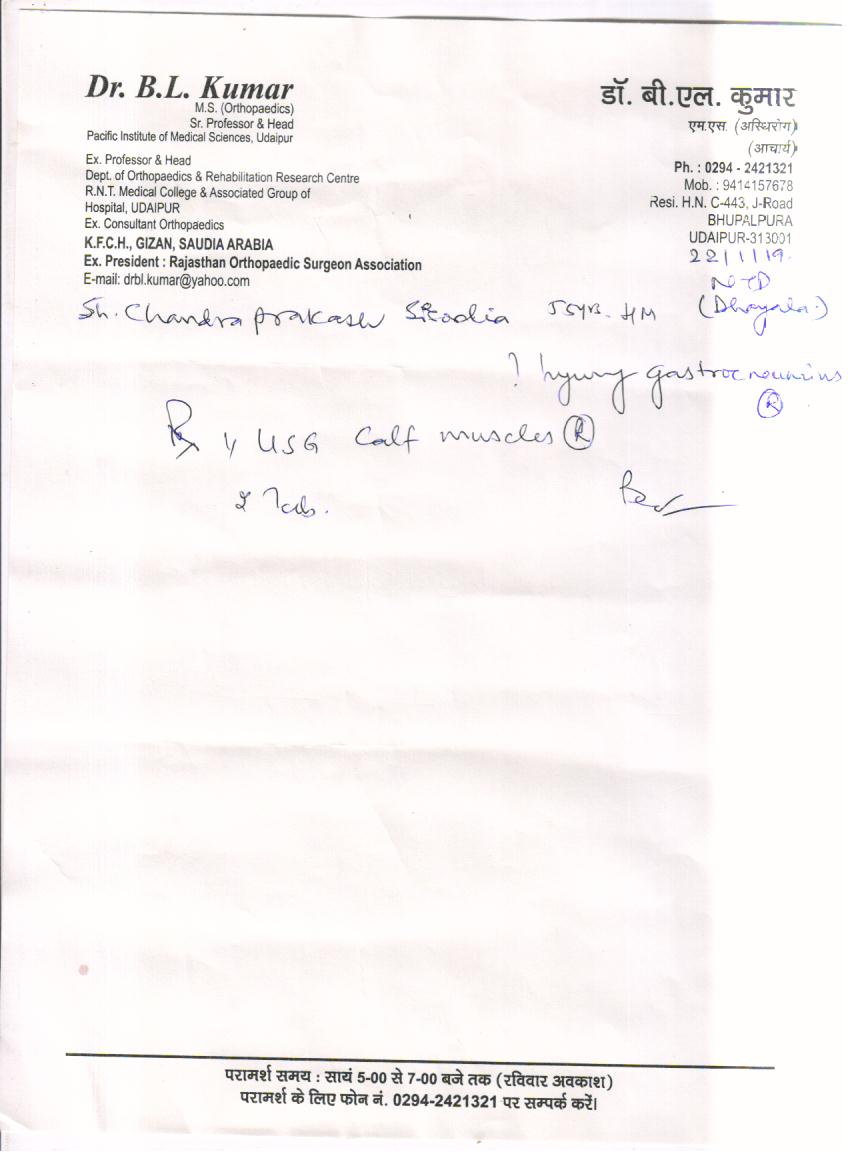 Dr. B.L. Kumar
M.S. (Orthopaedics)
Sr. Professor & Head
Pacific Institute of Medical Sciences, Udaipur
Ex. Professor & Head
Dept. of Orthopaedics & Rehabilitation Research Centre
R.N.T. Medical College & Associated Group of
Hospital, UDAIPUR
Ex. Consultant Orthopaedics
K.F.C.H., GIZAN, SAUDIA ARABIA
Ex. President : Rajasthan Orthopaedic Surgeon Association
E-mail: drbl.kumar@yahoo.com
डॉ. बी.एल. कुमार
एम.एस. (अस्थिरोग)
(आचार्य)
Ph. : 0294 - 2421321
Mob. : 9414157678
Resi. H.N. C-443, J-Road
BHUPALPURA
UDAIPUR-313001
22/1/19.
Sh. Chandra prakash 55yrs. HM
? gastrocnemius
Ⓡ
Rx 1/ USG Calf muscles Ⓡ
2 Tab.
परामर्श समय : सायं 5-00 से 7-00 बजे तक (रविवार अवकाश)
परामर्श के लिए फोन नं. 0294-2421321 पर सम्पर्क करें।